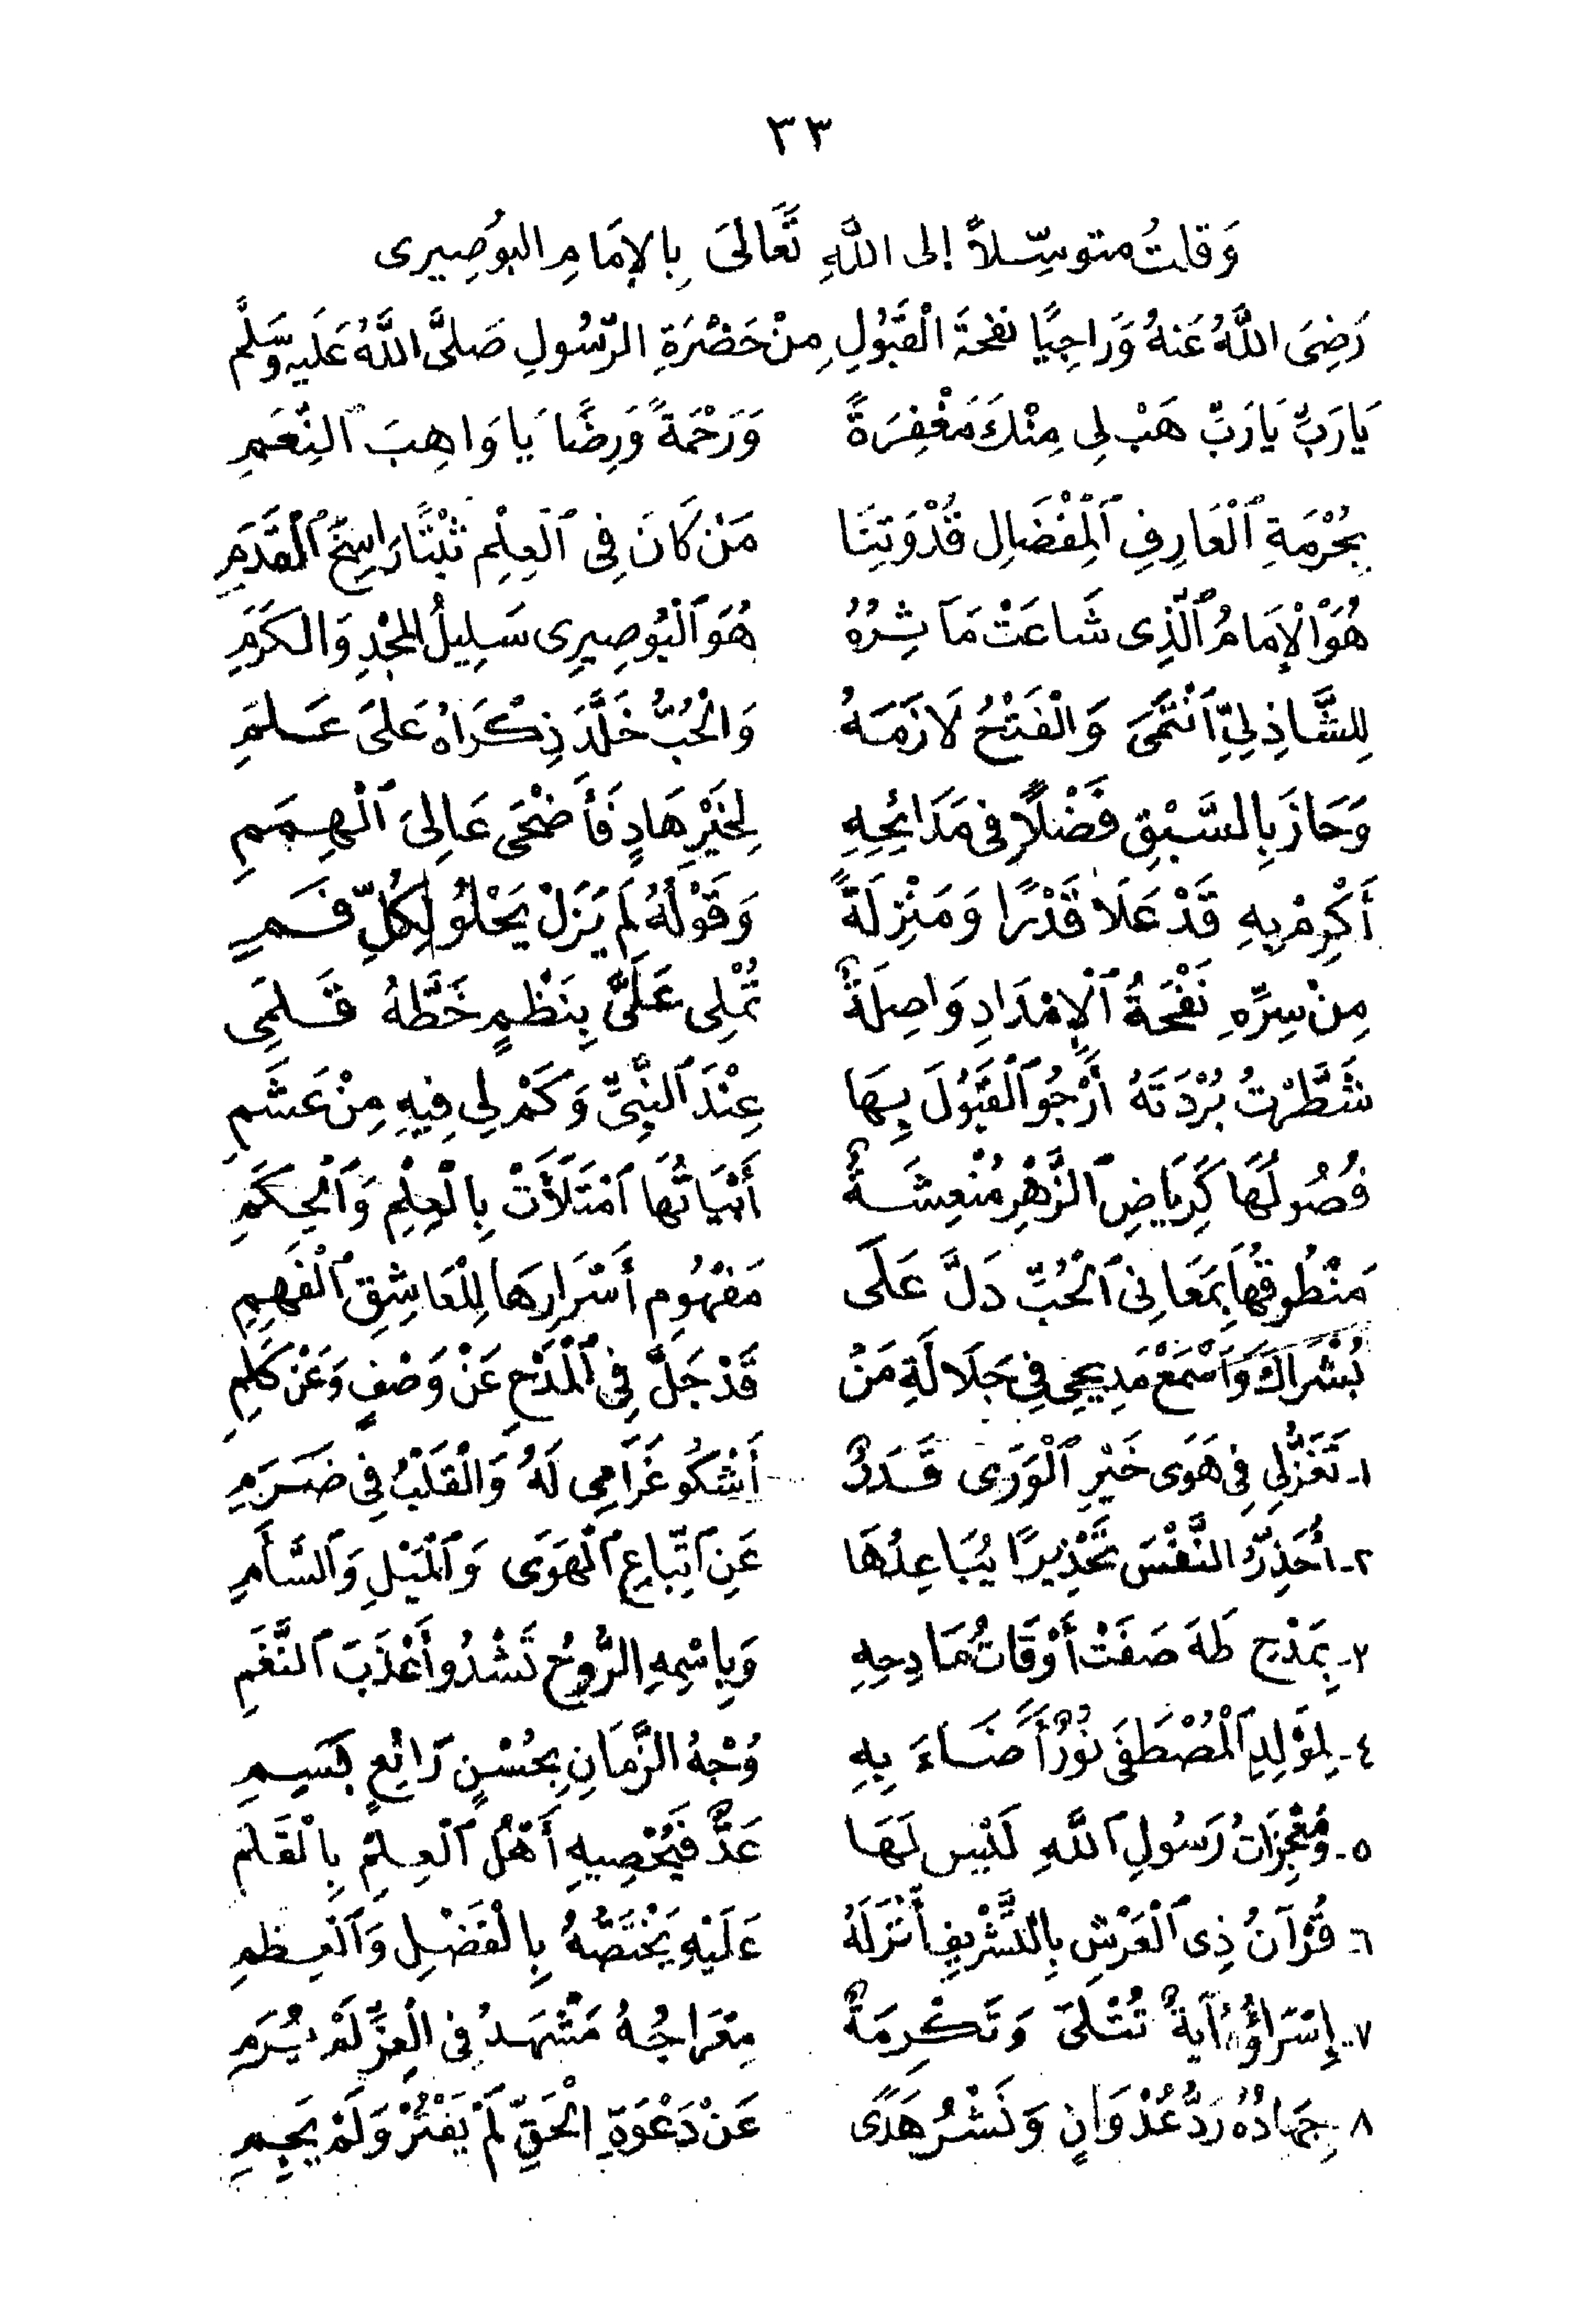 ٣٣
وَقلتُ متوسِّلاً إلى اللَّهِ تَعَالَى بِالإِمَامِ البُوصِيرى
رَضِىَ اللَّهُ عَنهُ وَرَاجِيًا نفحَةَ الْقَبُولِ مِنْ حَضْرَةِ الرَّسُولِ صَلَّى اللَّهُ عَلَيهِ وَسَلَّم
يَارَبِّ يَارَبِّ هَبْ لِى مِنْكَ مَغْفِرَةً وَرَحْمَةً وَرِضًا يَا وَاهِبَ ٱلنِّعَمِ
بِحُرْمَةِ ٱلْعَارِفِ ٱلْمِفْضَالِ قُدْوَتِنَا مَنْ كَانَ فِى ٱلْعِلْمِ ثَبْتًا رَاسِخَ ٱلْقَدَمِ
هُوَ الْإِمَامُ ٱلَّذِى شَاعَتْ مَآثِرُهُ هُوَ ٱلْبُوصِيرِى سَلِيلُ الْمَجْدِ وَالكَرَمِ
لِلشَّاذِلِيِّ ٱنْتَمَى وَالْفَتْحُ لَازَمَهُ وَالْحُبُّ خَلَّدَ ذِكْرَاهُ عَلَى عَلَمِ
وَحَازَ بِالسَّبْقِ فَضْلًا فِى مَدَائِحِهِ لِخَيْرِ هَادٍ فَأَضْحَى عَالِىَ ٱلْهِمَمِ
أَكْرِمْ بِهِ قَدْ عَلَا قَدْرًا وَمَنْزِلَةً وَقَوْلُهُ لَمْ يَزَلْ يَحْلُو لِكُلِّ فَمِ
مِنْ سِرِّهِ نَفْحَةُ ٱلْإِمْدَادِ وَاصِلَةٌ تُمْلِى عَلَىَّ بِنَظْمٍ خَطَّهُ قَلَمِى
شَطَّرْتُ بُرْدَتَهُ أَرْجُو ٱلْقَبُولَ بِهَا عِنْدَ ٱلنَّبِىِّ وَكَمْ لِى فِيهِ مِنْ عَشَمِ
فُصُولُهَا كَرِيَاضِ ٱلزَّهْرِ مُنْعِشَةٌ أَبْيَاتُهَا ٱمْتَلَأَتْ بِالْعِلْمِ وَٱلْحِكَمِ
مَنْطُوقُهَا بِمَعَانِى ٱلْحُبِّ دَلَّ عَلَى مَفْهُومِ أَسْرَارِهَا لِلْعَاشِقِ ٱلْفَهِمِ
بُشْرَاكَ وَٱسْمَعْ مَدِيحِى فِى جَلَالَةِ مَنْ قَدْ جَلَّ فِى ٱلْمَدْحِ عَنْ وَصْفٍ وَعَنْ كَلِمِ
١- تَغَزُّلِى فِى هَوَى خَيْرِ ٱلْوَرَى قَدَرٌ أَشْكُو غَرَامِى لَهُ وَالْقَلْبُ فِى ضَرَمِ
٢- أُحَذِّرُ النَّفْسَ تَحْذِيرًا يُبَاعِدُهَا عَنِ ٱتِّبَاعِ ٱلْهَوَى وَٱلْمَيْلِ وَٱلسَّأَمِ
٣- بِمَدْحِ طَهَ صَفَتْ أَوْقَاتُ مَادِحِهِ وَبِاسْمِهِ الرُّوحُ تَشْدُو أَعْذَبَ ٱلنَّغَمِ
٤- لِمَوْلِدِ ٱلْمُصْطَفَى نُورٌ أَضَاءَ بِهِ وَجْهُ الزَّمَانِ بِحُسْنٍ رَائِعٍ بَسِمِ
٥- وَمُعْجِزَاتُ رَسُولِ ٱللَّهِ لَيْسَ لَهَا عَدٌّ فَيُحْصِيهِ أَهْلُ ٱلْعِلْمِ بِالْقَلَمِ
٦- قُرْآنُ ذِى ٱلْعَرْشِ بِالتَّشْرِيفِ أَنْزَلَهُ عَلَيْهِ يَخْتَصُّهُ بِالْفَضْلِ وَٱلْعِظَمِ
٧- إِسْرَاؤُهُ آيَةٌ تُتْلَى وَتَكْرِمَةٌ مِعْرَاجُهُ مَشْهَدُ فِى الْعِزِّ لَمْ يُرَمِ
٨- جِهَادُهُ رَدُّ عُدْوَانٍ وَنَشْرُ هُدًى عَنْ دَعْوَةِ الْحَقِّ لَمْ يَفْتُرْ وَلَمْ يَجِمِ